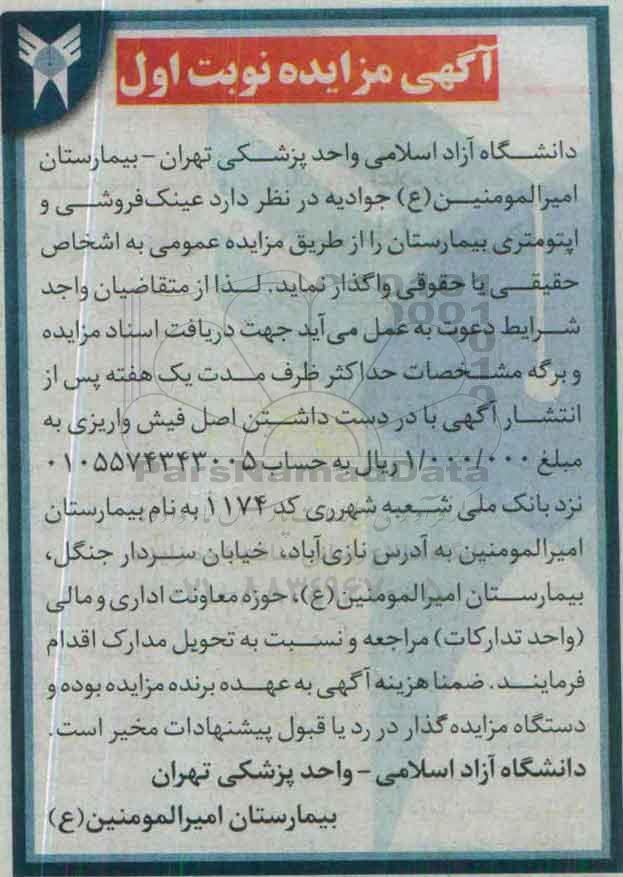 آگهی مزایده نوبت اول
دانشگاه آزاد اسلامی واحد پزشکی تهران - بیمارستان
امیرالمومنین(ع) جوادیه در نظر دارد عینک‌فروشی و
اپتومتری بیمارستان را از طریق مزایده عمومی به اشخاص
حقیقی یا حقوقی واگذار نماید. لذا از متقاضیان واجد
شرایط دعوت به عمل می‌آید جهت دریافت اسناد مزایده
و برگه مشخصات حداکثر ظرف مدت یک هفته پس از
انتشار آگهی با در دست داشتن اصل فیش واریزی به
مبلغ ۱/۰۰۰/۰۰۰ ریال به حساب ۰۱۰۵۵۷۴۳۴۳۰۰۵
ParsNamadData
نزد بانک ملی شعبه شهرری کد ۱۱۷۴ به نام بیمارستان
امیرالمومنین به آدرس نازی‌آباد، خیابان سردار جنگل،
بیمارستان امیرالمومنین(ع)، حوزه معاونت اداری و مالی
(واحد تدارکات) مراجعه و نسبت به تحویل مدارک اقدام
فرمایند. ضمنا هزینه آگهی به عهده برنده مزایده بوده و
دستگاه مزایده گذار در رد یا قبول پیشنهادات مخیر است.
دانشگاه آزاد اسلامی - واحد پزشکی تهران
بیمارستان امیرالمومنین(ع)